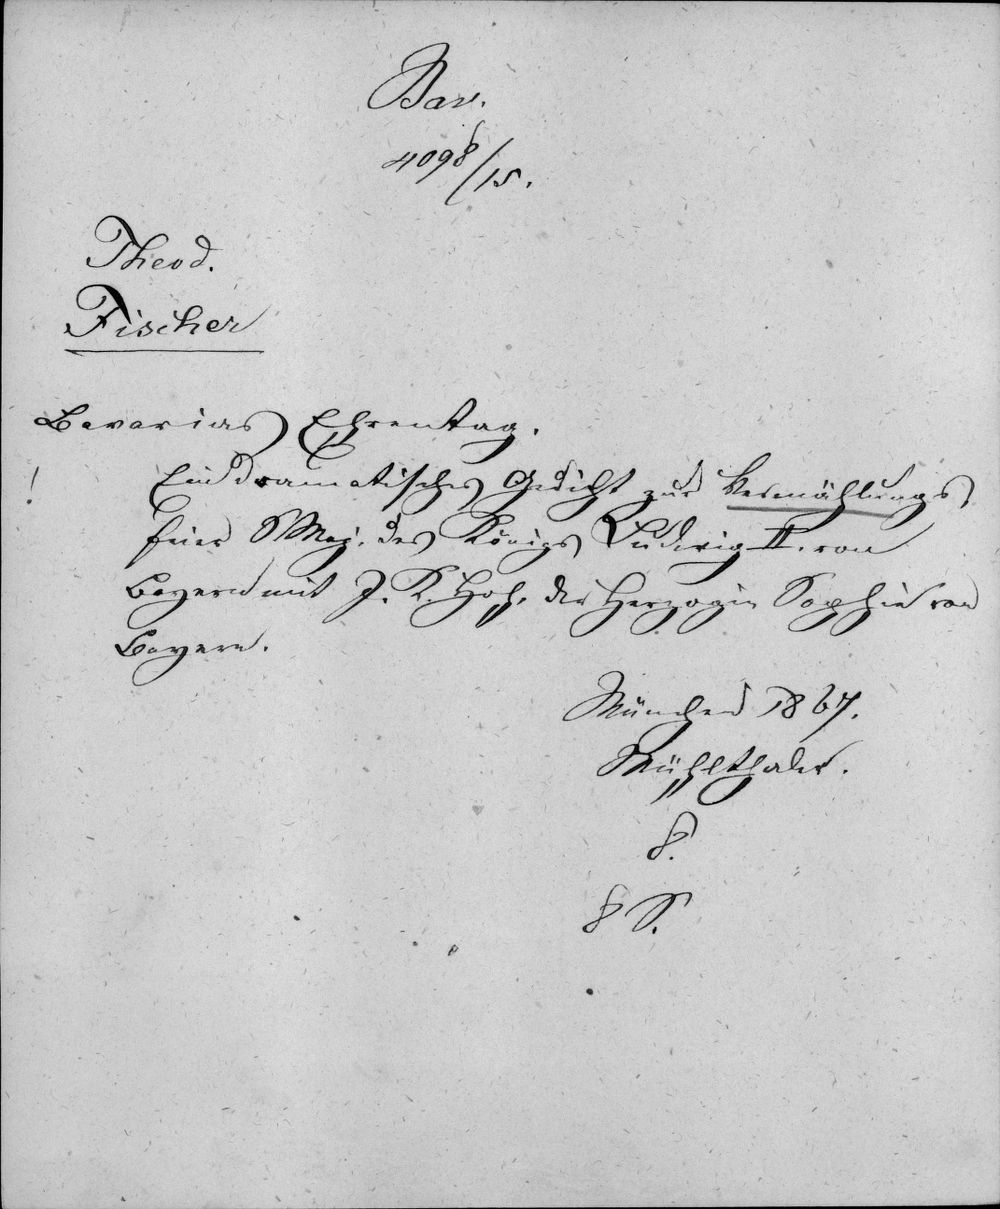 Bav.
4098/15.
Theod.
Fischer
Bavarias Ehrentag.
! Ein dramatisches Gedicht zur Vermählungs
feier S Maj. des Königs Ludwig II. von
Bayern mit J. K. Hoh. der Herzogin Sophie von
Bayern.
München 1867.
Mühlthaler.
8.
8 S.